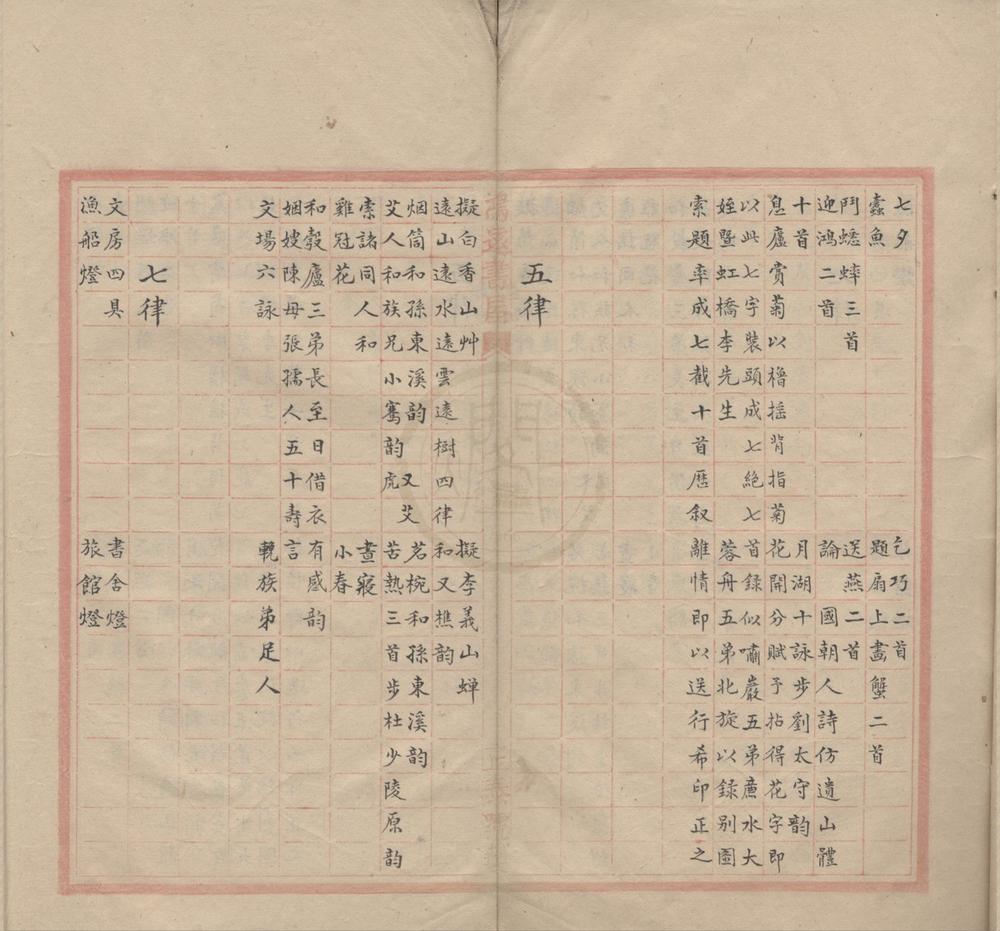 七夕　乞巧二首
蠹魚　題扇上畫蟹二首
鬥蟋蟀三首　送燕二首
迎鴻二首　論　國朝人詩仿遺山體
十首　月湖十詠步劉太守韵
息廬賞菊以櫓搖背指菊花開分賦予拈得花字即
以此七字裝頭成七絕七首錄似嘯巖五弟薦水大
姪暨虹橋李先生　蓉舟五弟北旋以錄別圖
索題率成七截十首歷叙離情即以送行希印正之
五律
擬白香山艸　擬李義山蟬
遠山遠水遠雲遠樹四律　和又樵韵
烟筒和孫東溪韵　又艾　茗椀和孫東溪韵
艾人和族兄小騫韵　虎　苦熱三首步杜少陵原韵
索諸同人和　晝寢
雞冠花　小春
和穀廬三弟長至日借衣有感韵
姻嫂陳母張孺人五十壽言
文場六詠　輓族弟足人
七律
文房四具　書舍燈
漁船燈　旅館燈